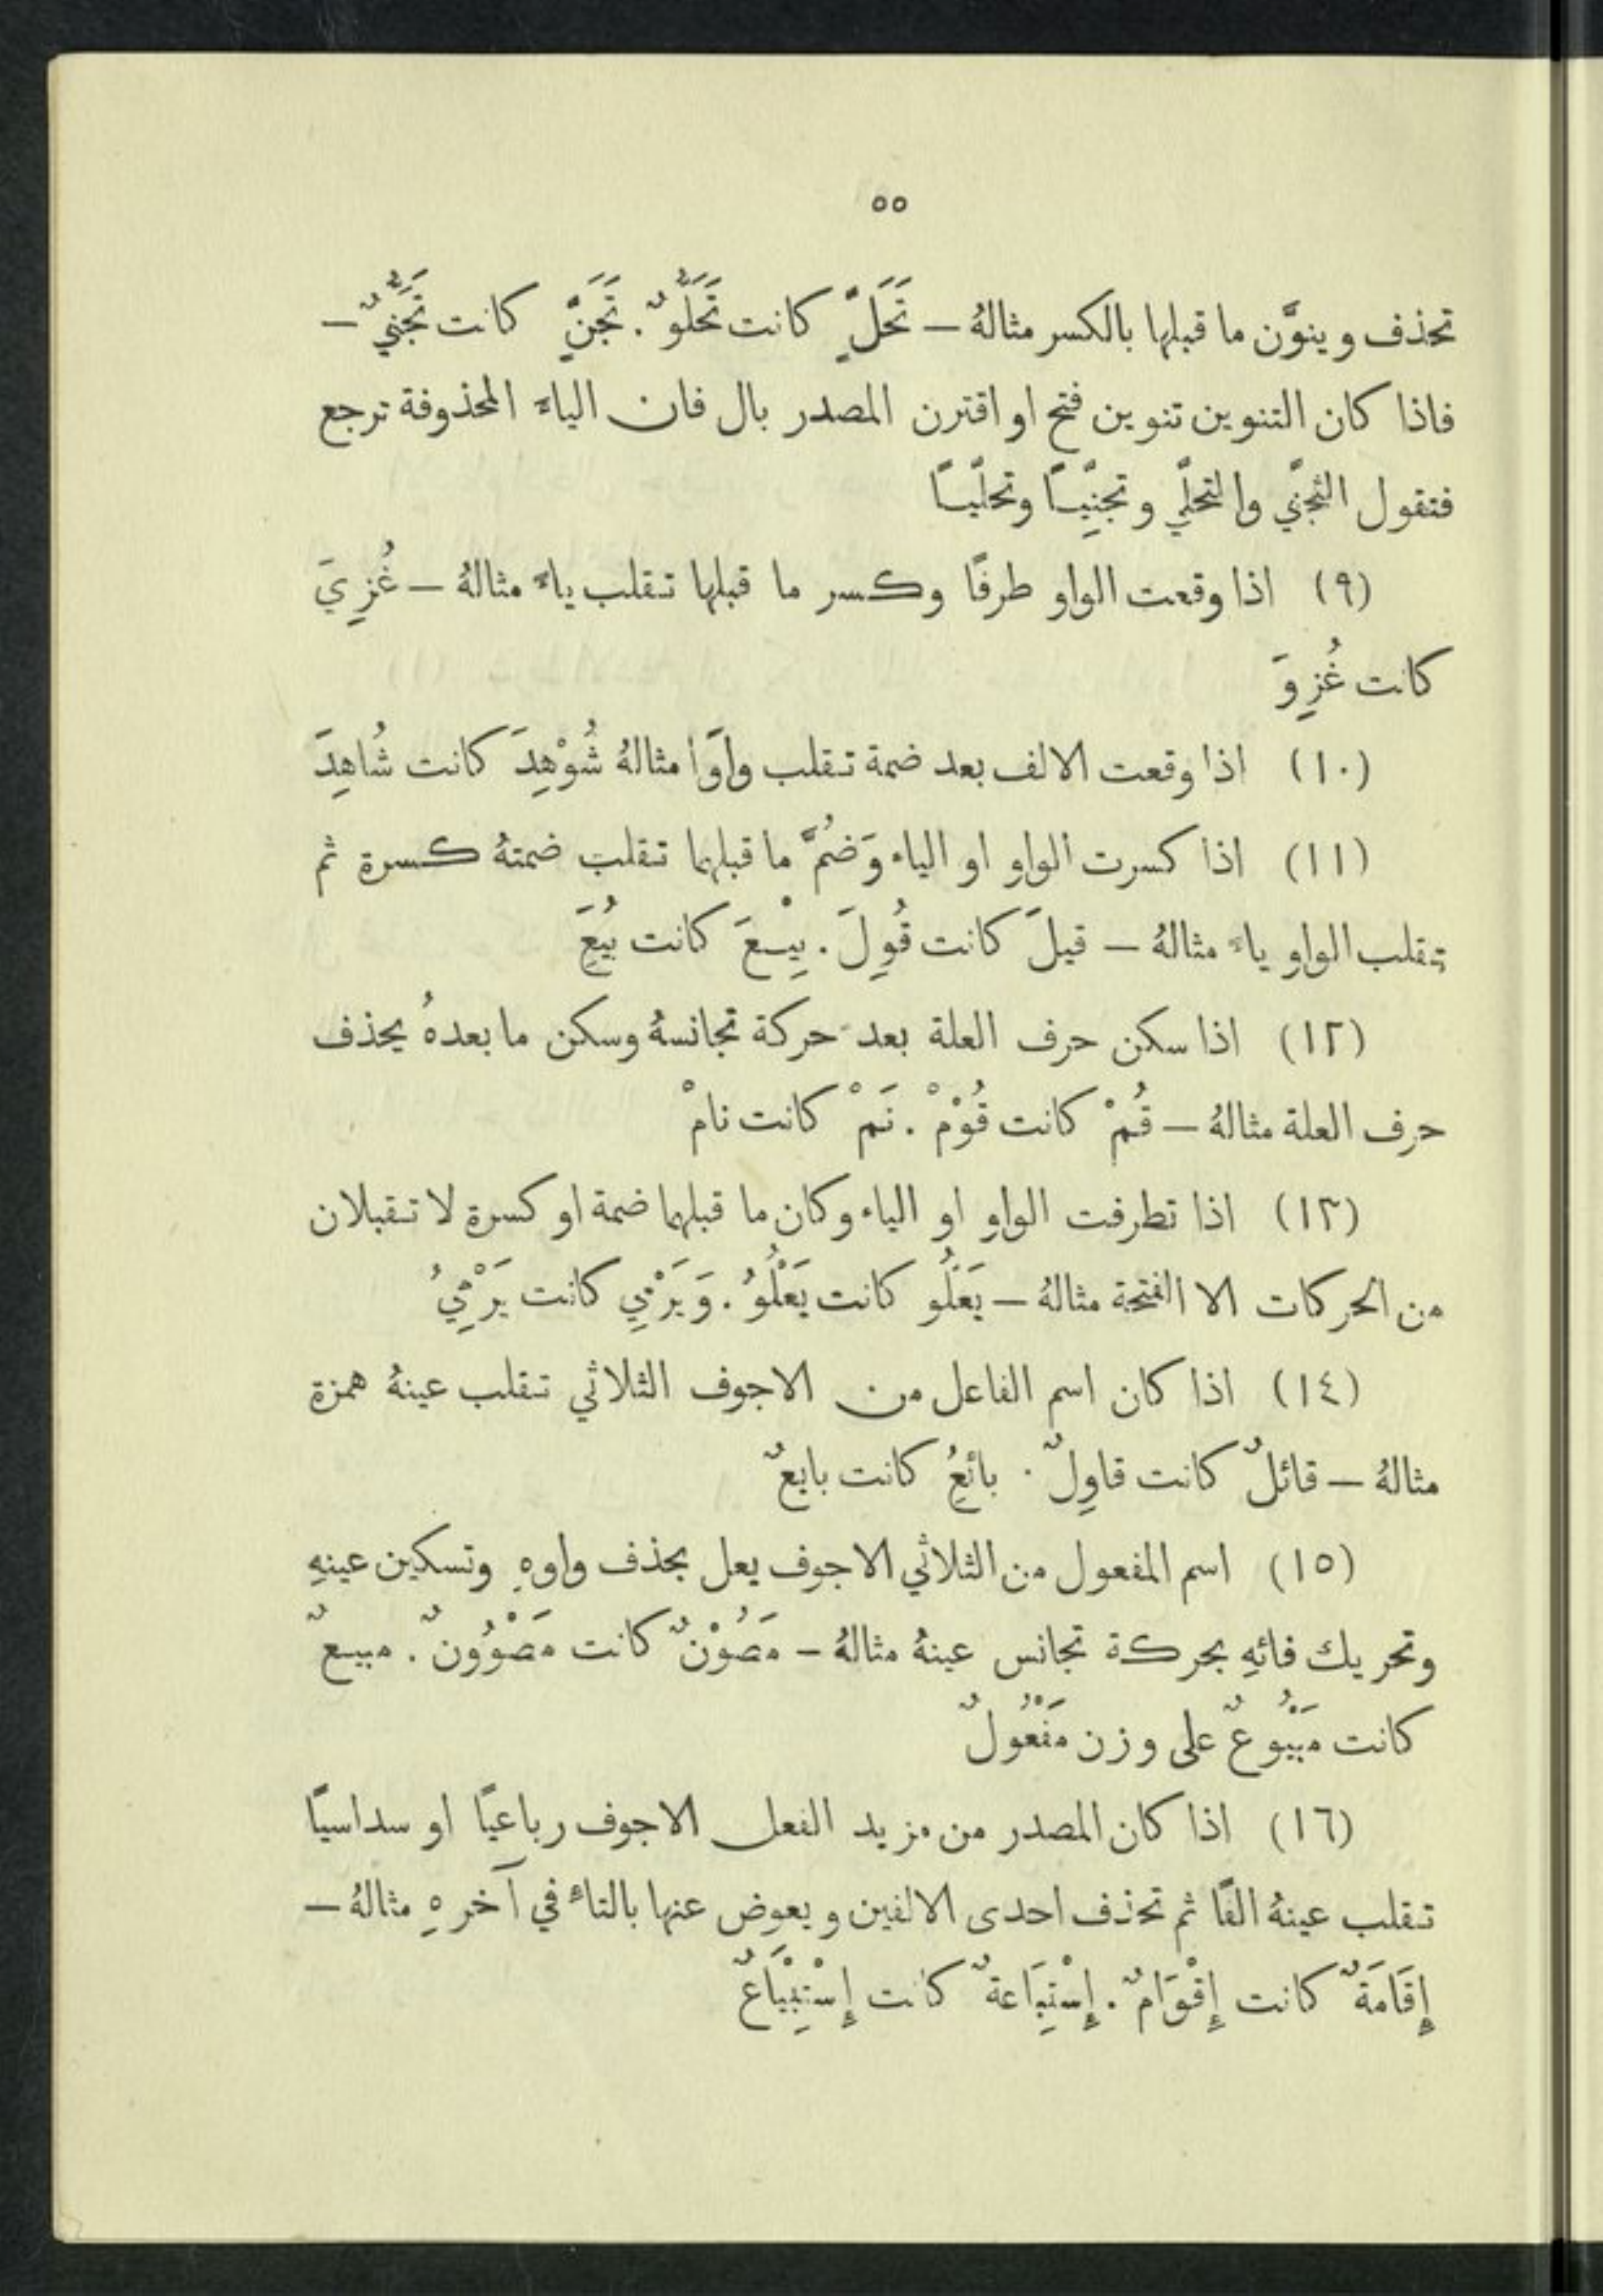 ٥٥
تحذف وينوَّن ما قبلها بالكسر مثالهُ — تَحَلٍّ كانت تَحَلُّوٌ. تَجَنٍّ كانت تَجَنُّيٌ —
فاذا كان التنوين تنوين فتح او اقترن المصدر بال فان الياء المحذوفة ترجع
فتقول التجنِّي والتحلِّي وتجنِّيـًا وتحلّيـًا
(٩) اذا وقعت الواو طرفًا وكسر ما قبلها تقلب ياءً مثالهُ — غُزِيَ
كانت غُزِوَ
(١٠) اذا وقعت الالف بعد ضمة تقلب واوًا مثالهُ شُوْهِدَ كانت شُاهِدَ
(١١) اذا كسرت الواو او الياء وَضُمَّ ما قبلهما تقلب ضمتهُ كسرة ثم
تقلب الواو ياءً مثالهُ — قيلَ كانت قُوِلَ. بِيْعَ كانت بُيِعَ
(١٢) اذا سكن حرف العلة بعد حركة تجانسهُ وسكن ما بعدهُ يحذف
حرف العلة مثالهُ — قُمْ كانت قُوْمْ. نَمْ كانت نامْ
(١٣) اذا تطرفت الواو او الياء وكان ما قبلهما ضمة او كسرة لا تقبلان
من الحركات الا الفتحة مثالهُ — يَعْلُو كانت يَعْلُوُ. وَيَرْمِي كانت يَرْمِيُ
(١٤) اذا كان اسم الفاعل من الاجوف الثلاثي تقلب عينهُ همزة
مثالهُ — قائلٌ كانت قاوِلٌ. بائعٌ كانت بايعٌ
(١٥) اسم المفعول من الثلاثي الاجوف يعل بحذف واوهِ وتسكين عينهِ
وتحريك فائهِ بحركة تجانس عينهُ مثالهُ — مَصُوْنٌ كانت مَصْوُونٌ. مبيعٌ
كانت مَبْيُوعٌ على وزن مَفْعُولٌ
(١٦) اذا كان المصدر من مزيد الفعل الاجوف رباعيًا او سداسيًا
تقلب عينهُ الفًا ثم تحذف احدى الالفين ويعوض عنها بالتاء في آخرهِ مثالهُ —
إِقَامَةٌ كانت إِقْوَامٌ. إِسْتِبَاعةٌ كانت إِسْتِبْيَاعٌ